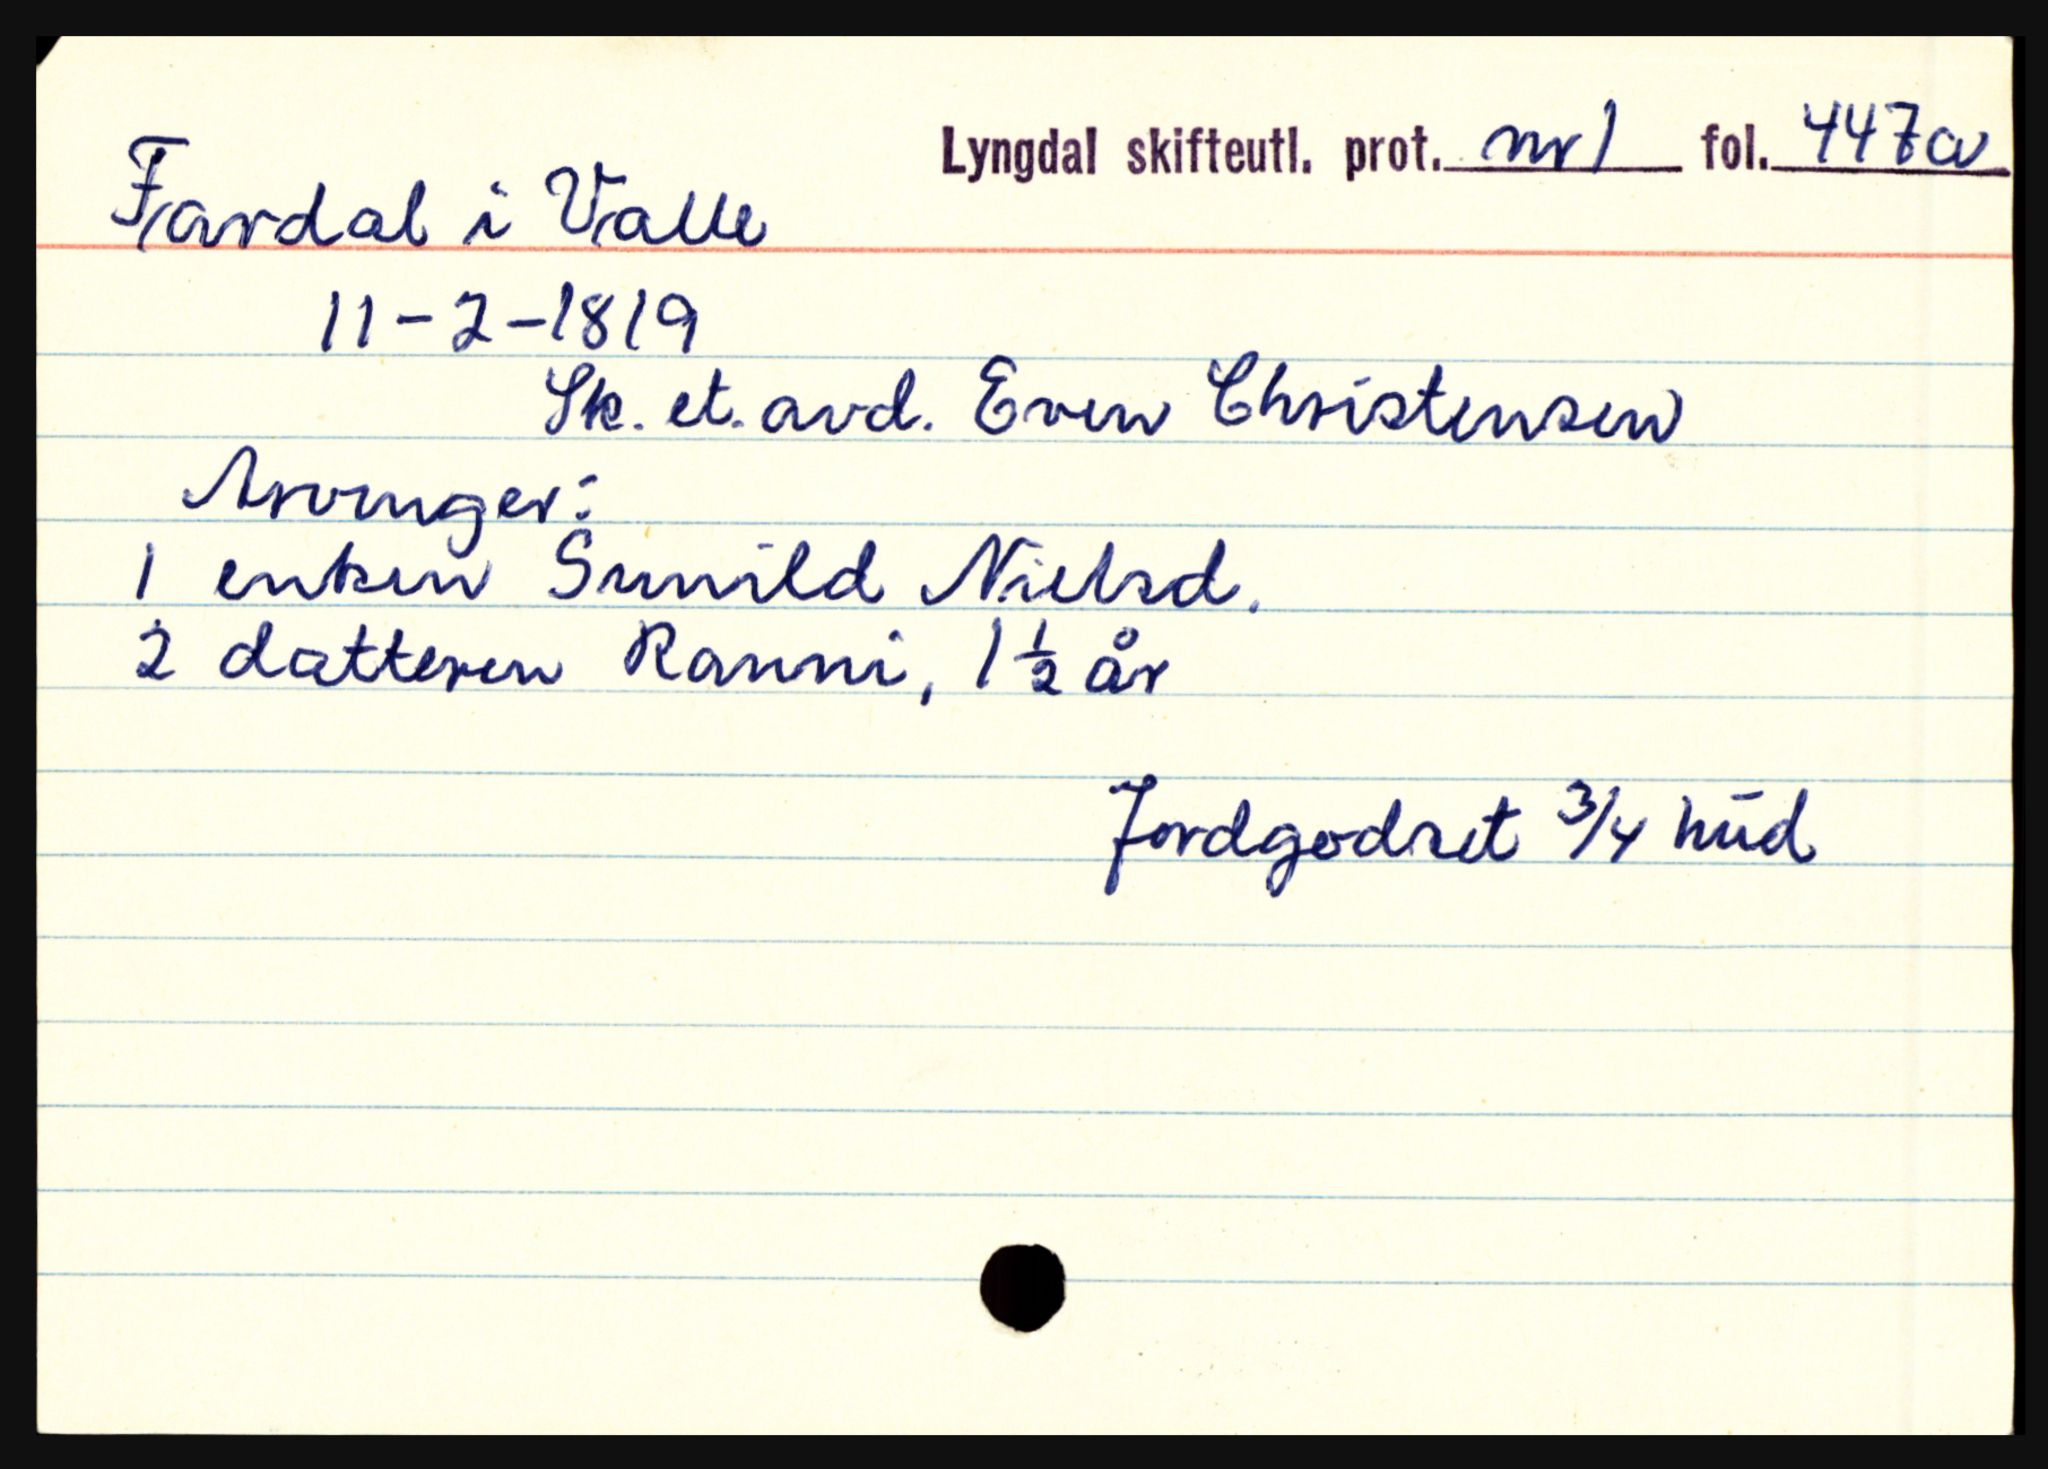 Lyngdal skifteutl. prot. nr 1 fol. 447a
Fardal i Valle
11-2-1819
Sk. et. avd. Even Christensen
Arvinger:
1 enken Sunild Nielsd.
2 datteren Ranni, 1 ½ år
Jordgodset 3/4 hud